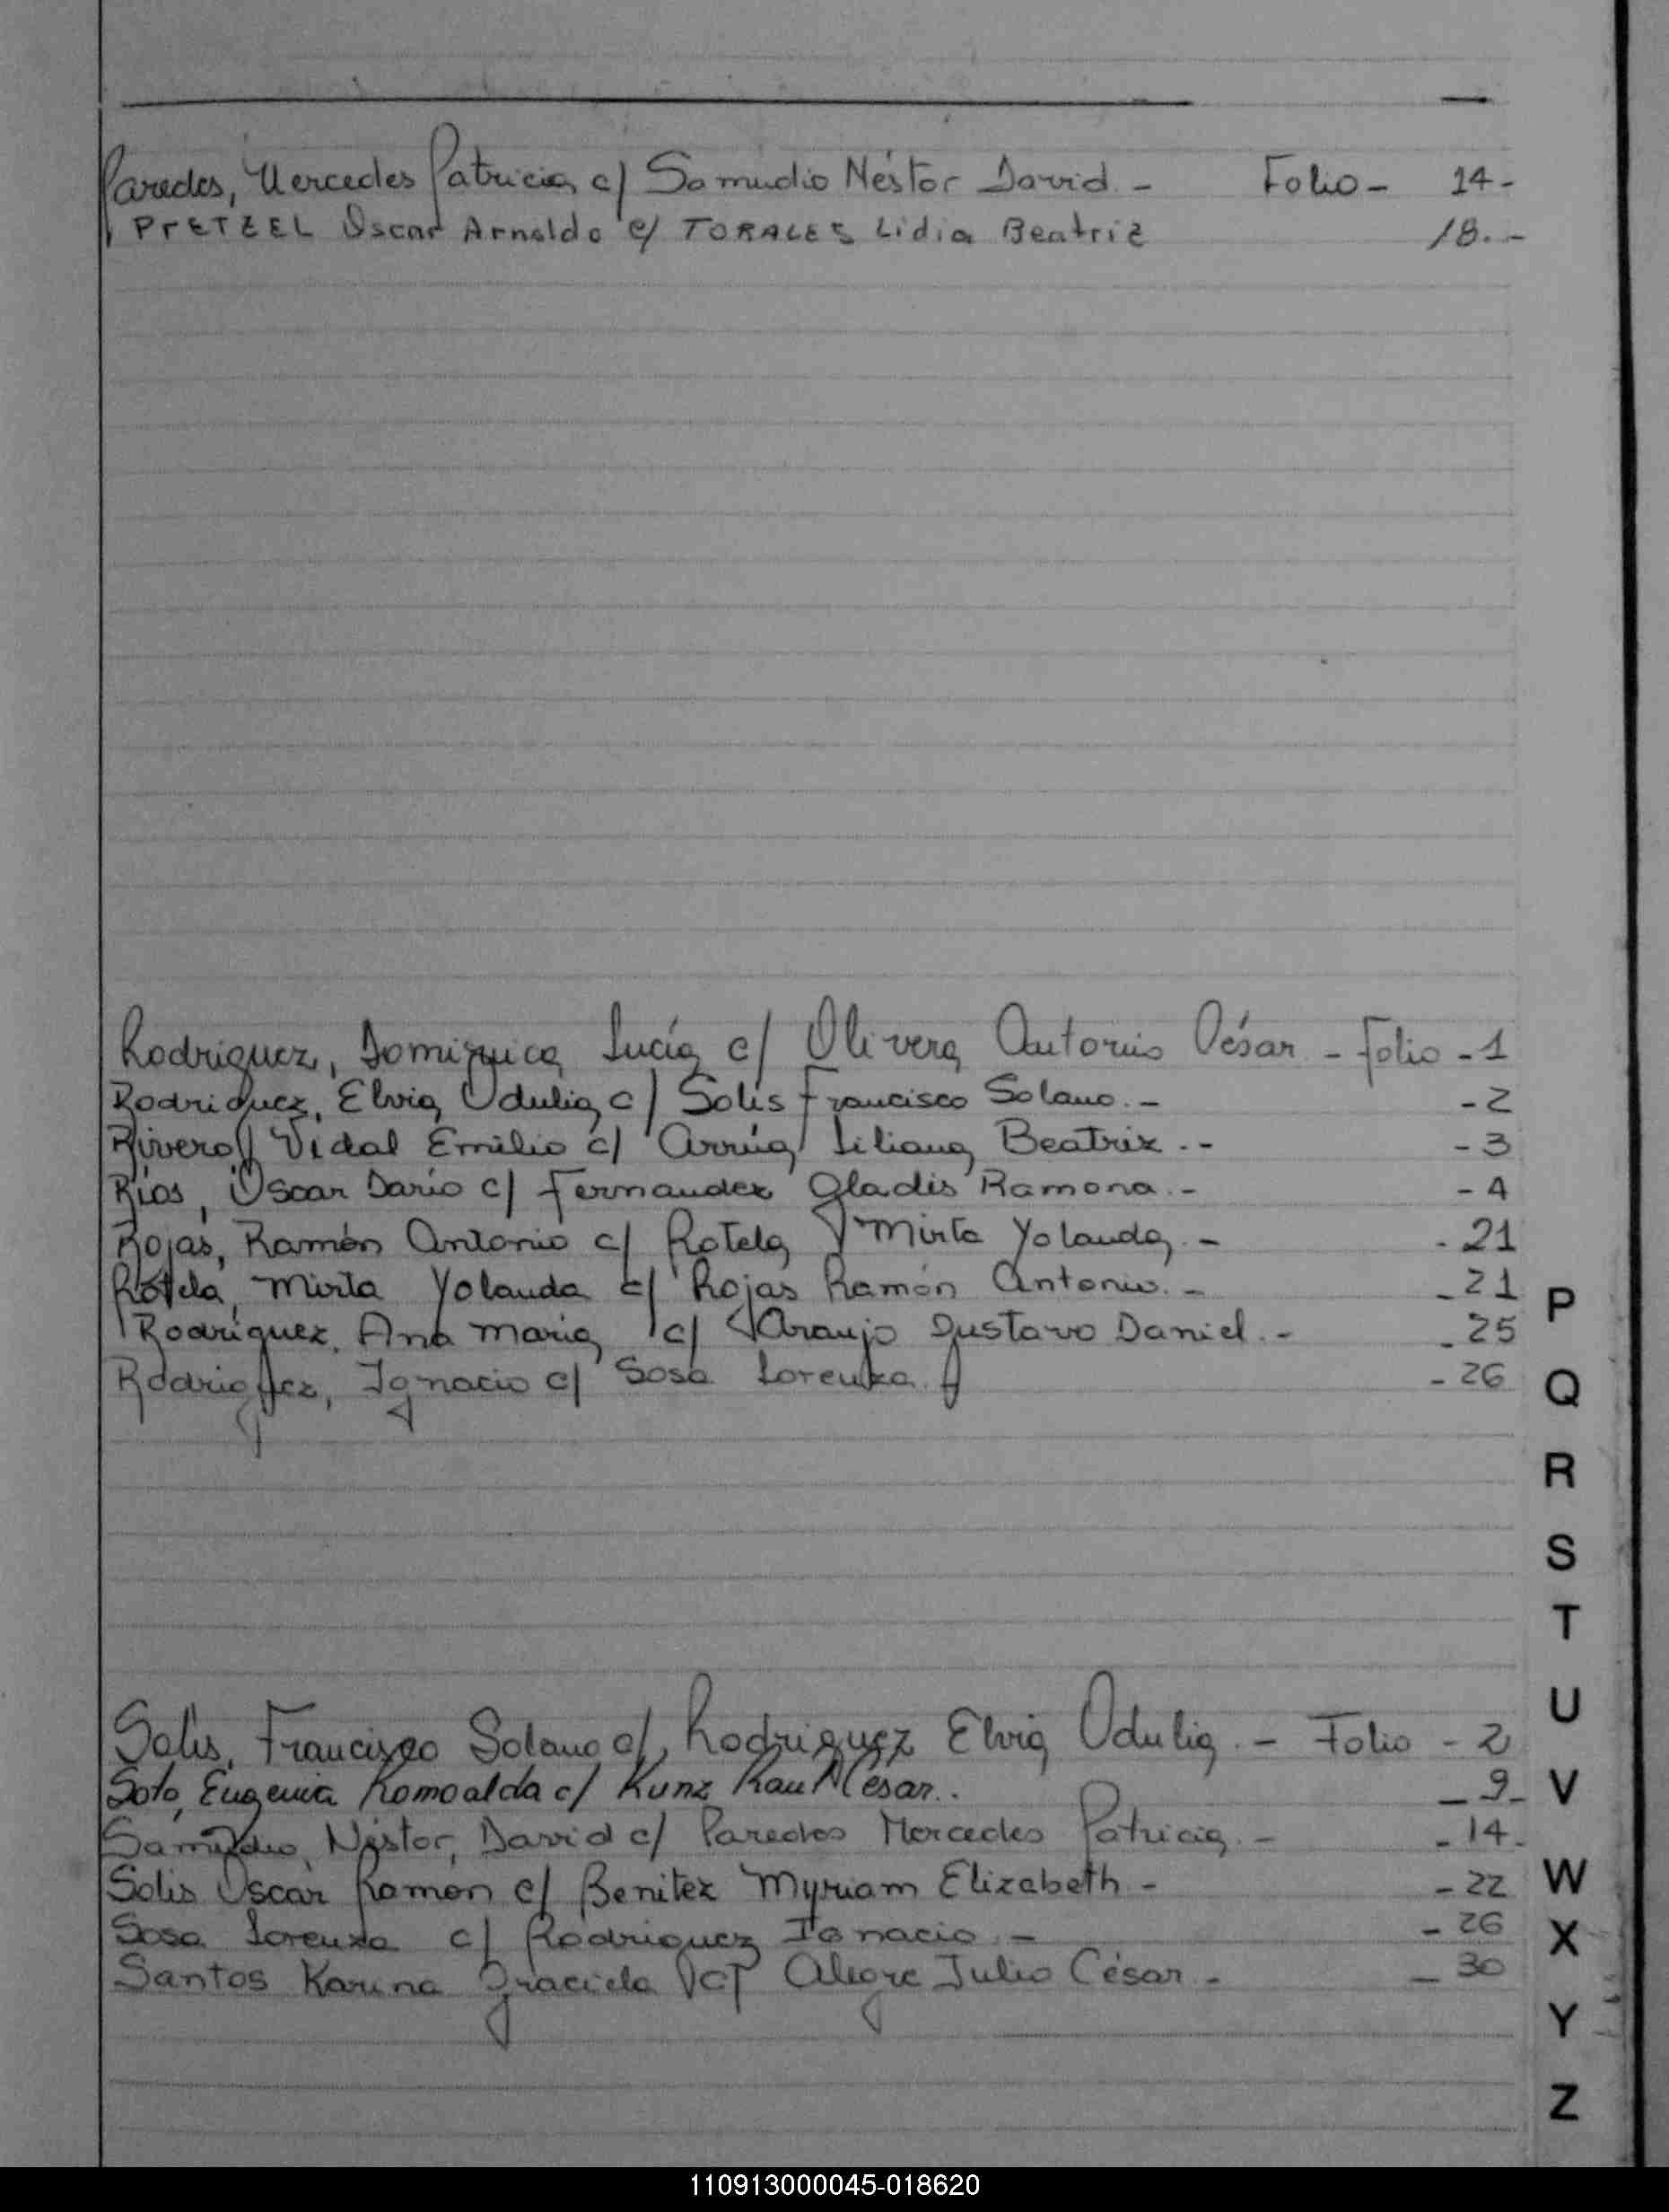 Paredes, Mercedes Patricia c/ Samudio Néstor David. - Folio - 14 -
PrETZEL Oscar Arnaldo c/ TORALES Lidia Beatriz 18. -
Rodriguez, Dominica Lucía c/ Olivera Antonio César - Folio - 1
Rodriguez, Elvia Odulia c/ Solis Francisco Solano. - - 2
Rivero, Vidal Emilio c/ Arrúa Liliana Beatriz. - - 3
Ríos, Oscar Darío c/ Fernandez Gladis Ramona. - - 4
Rojas, Ramón Antonio c/ Rotela Mirta Yolanda. - - 21
Rotela, Mirta Yolanda c/ Rojas Ramón Antonio. - - 21
Rodríguez, Ana Maria c/ Araujo Gustavo Daniel. - - 25
Rodriguez, Ignacio c/ Sosa Lorenza. - 26
Solis, Francisco Solano c/ Rodriguez Elvia Odulia. - Folio - 2
Soto, Eugenia Romoalda c/ Kunz Raul César.. - 9 -
Samudio, Néstor, David c/ Paredes Mercedes Patricia. - - 14 -
Solis Oscar Ramon c/ Benitez Myriam Elizabeth - - 22
Sosa Lorenza c/ Rodriguez Ignacio. - - 26
Santos Karina Graciela c/ Alegre Julio César - - 30
P
Q
R
S
T
U
V
W
X
Y
Z
110913000045-018620